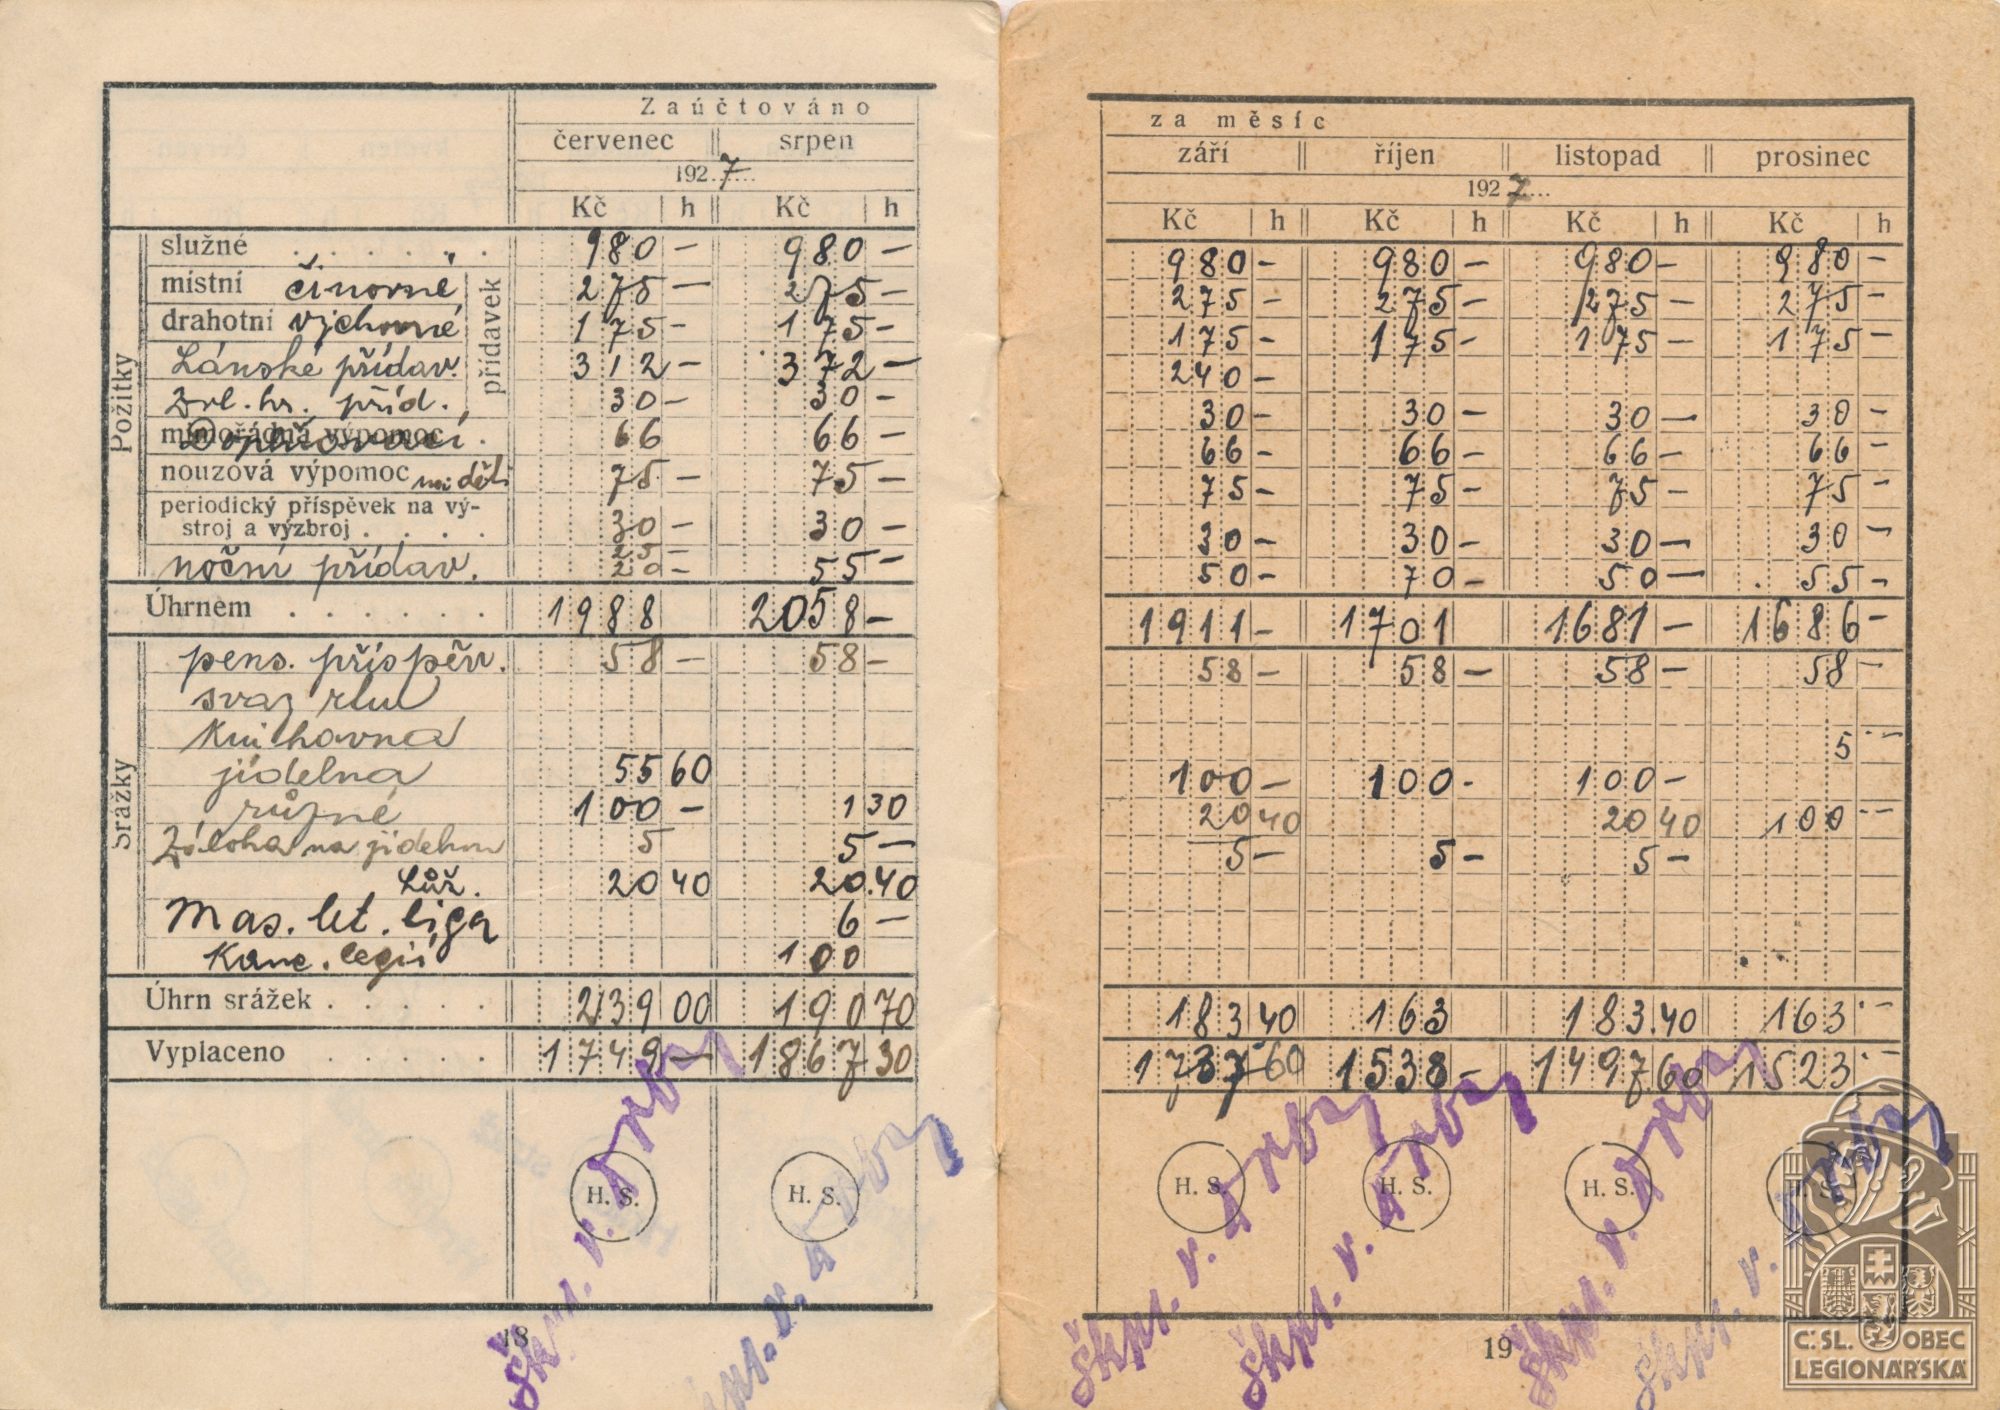 Zaúčtováno
červenec srpen
192 7
Kč h Kč h
Požitky
přídavek
služné 980 — 980 —
místní činovné 275 — 275 —
drahotní výchovné 175 — 175 —
Lánské přídav. 312 — 372 —
Zvl. hr. příd. 30 — 30 —
mimořádná výpomoc 66 66 —
nouzová výpomoc na děti 75 — 75 —
periodický příspěvek na vý-
stroj a výzbroj 30 — 30 —
25 —
noční přídav. 20 — 55 —
Úhrnem 1988 2058 —
Srážky
pens. příspěv. 58 — 58 —
svaz rtm
Knihovna
jídelna 55 60
různé 100 — 1 30
Záloha na jídelnu 5 5 —
Lůž. 20 40 20.40
Mas. let. liga 6 —
Kanc. legií 100
Úhrn srážek 239 00 190 70
Vyplaceno 1749 — 1867 30
H. S. H. S.
škpt. v.
18
za měsíc
září říjen listopad prosinec
192 7
Kč h Kč h Kč h Kč h
980 — 980 — 980 — 980 —
275 — 275 — 275 — 275 —
175 — 175 — 175 — 175 —
240 —
30 — 30 — 30 — 30 —
66 — 66 — 66 — 66 —
75 — 75 — 75 — 75 —
30 — 30 — 30 — 30 —
50 — 70 — 50 — 55 —
1911 — 1701 1681 — 1686 —
58 — 58 — 58 — 58 —
5 —
100 — 100 — 100 —
20 40 20 40 100 —
5 — 5 — 5 —
183 40 163 183.40 163 —
1737 60 1538 — 1497 60 1523 —
H. S. H. S. H. S. H. S.
škpt. v. škpt. v. škpt. v.
19
Č. SL. OBEC
LEGIONÁŘSKÁ